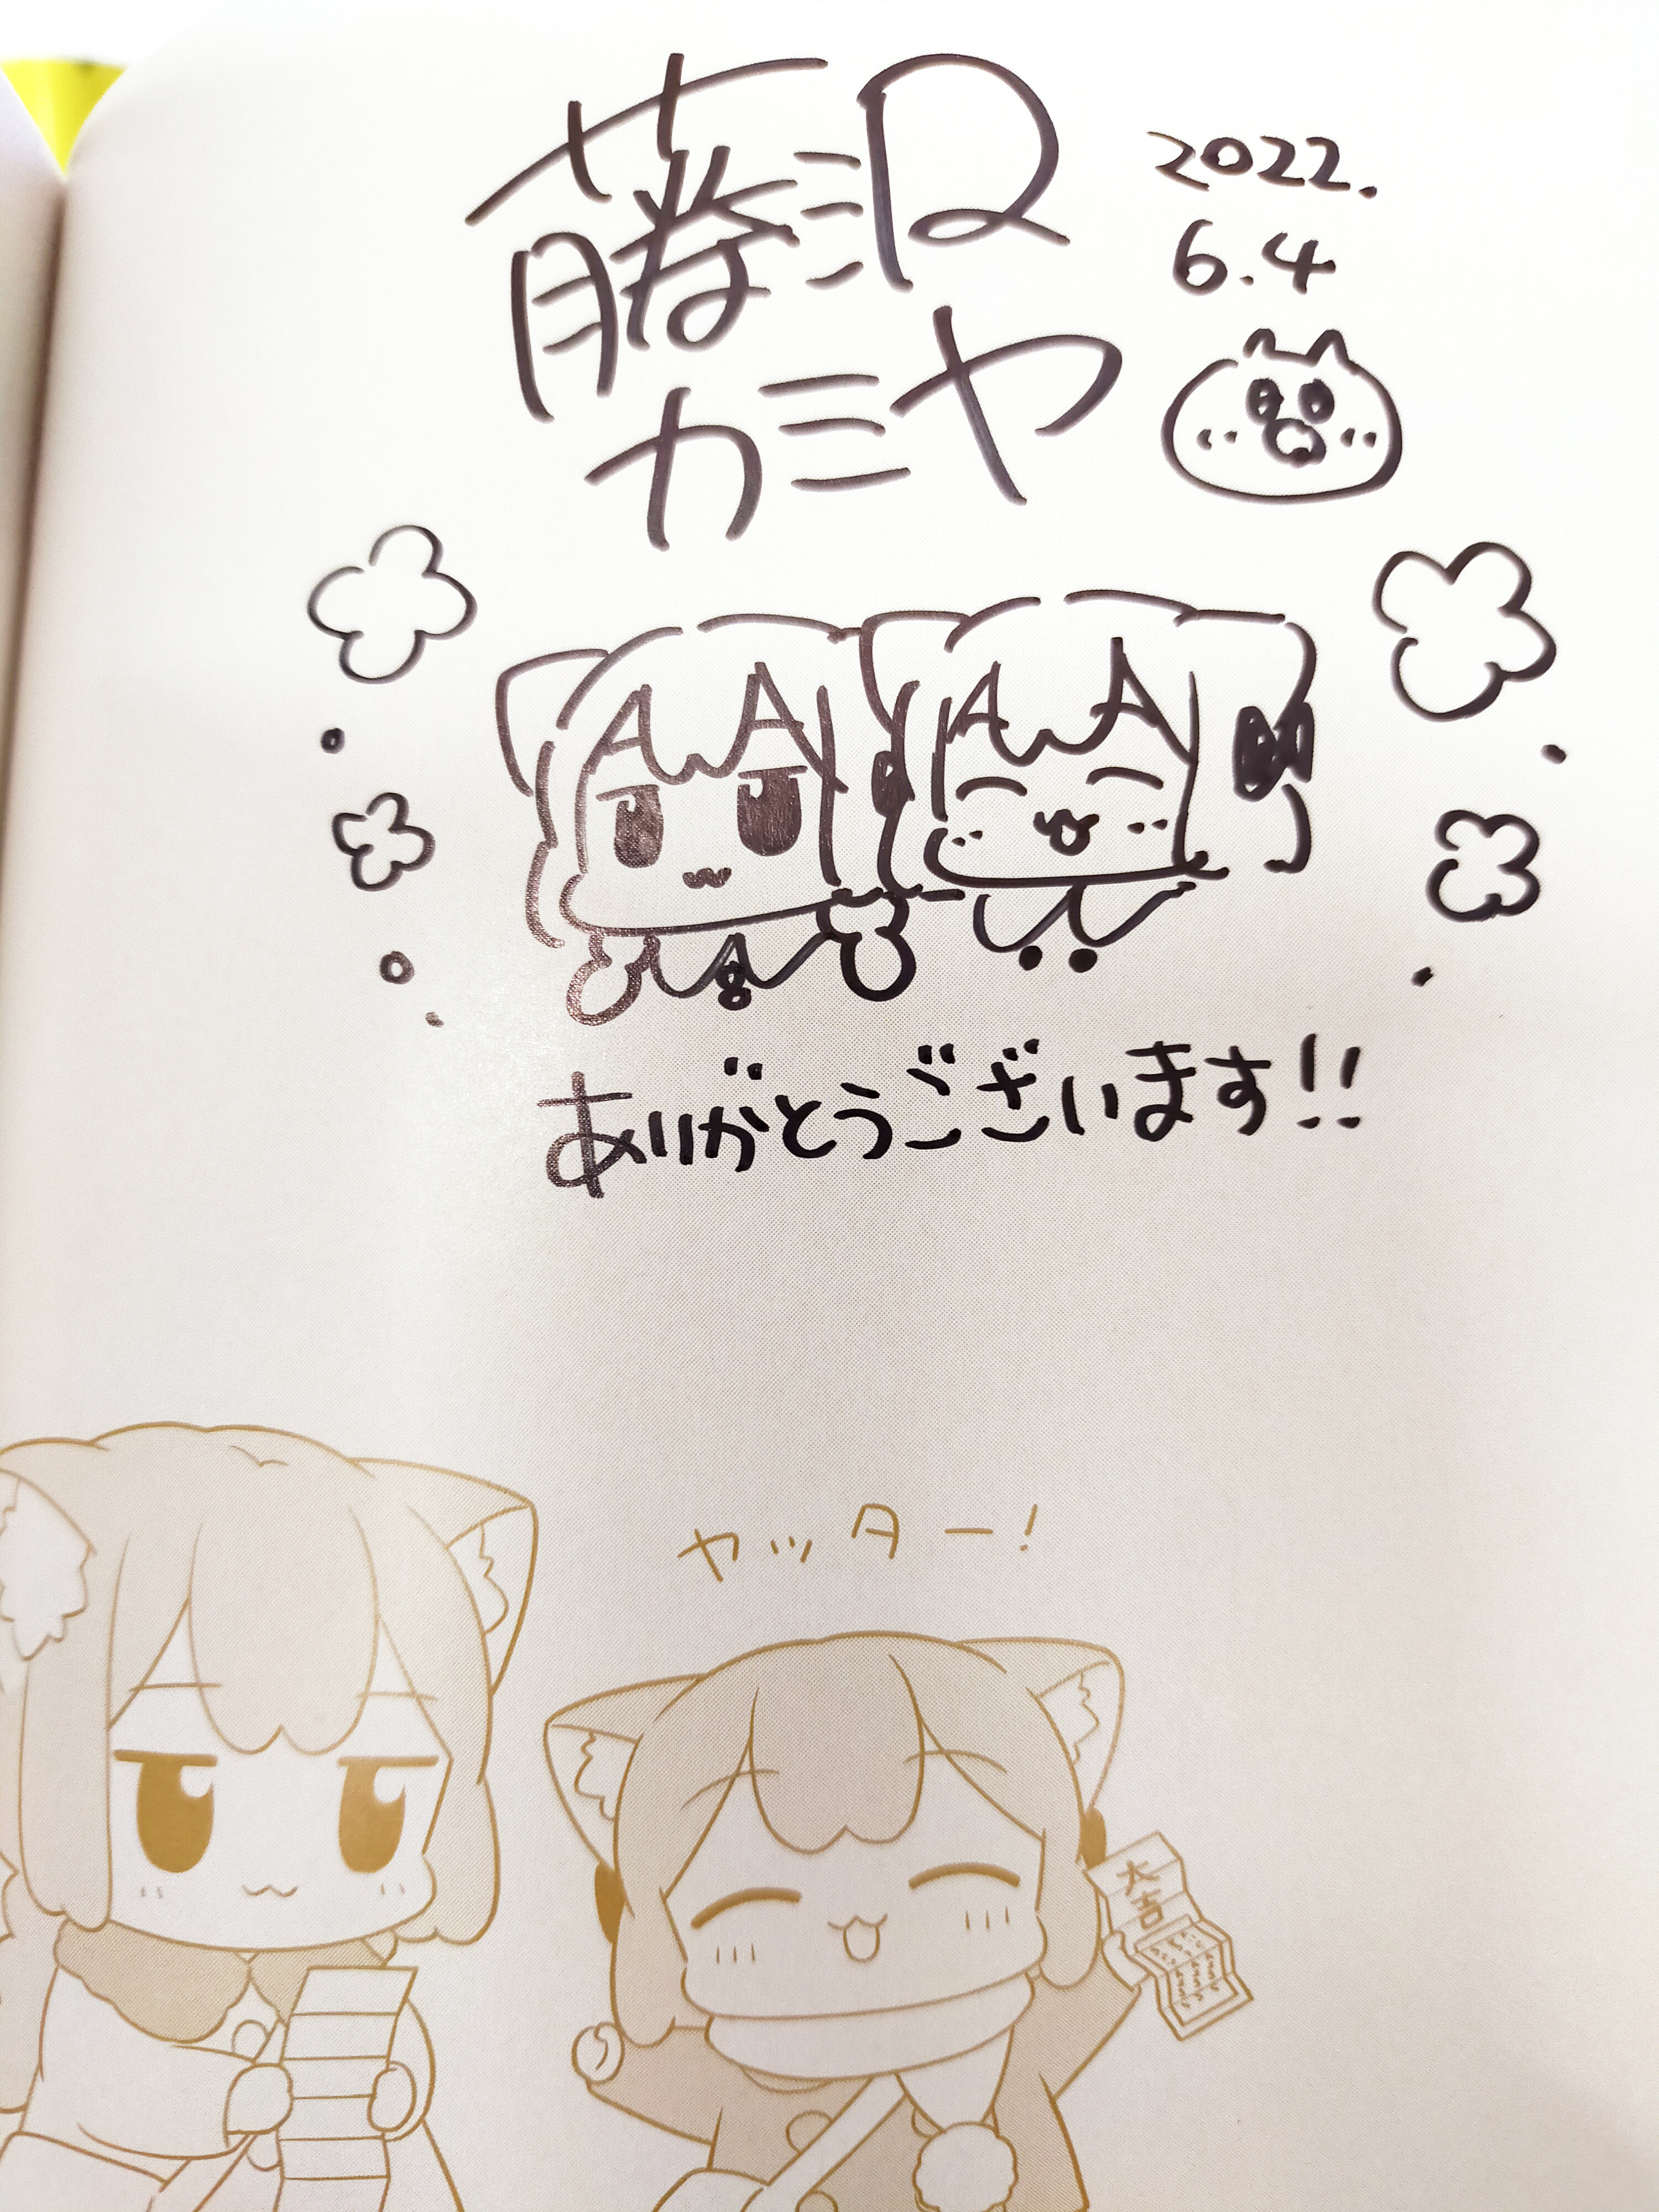 藤沢
カミヤ
2022.
6.4
ありがとうございます!!
ヤッター!
大吉